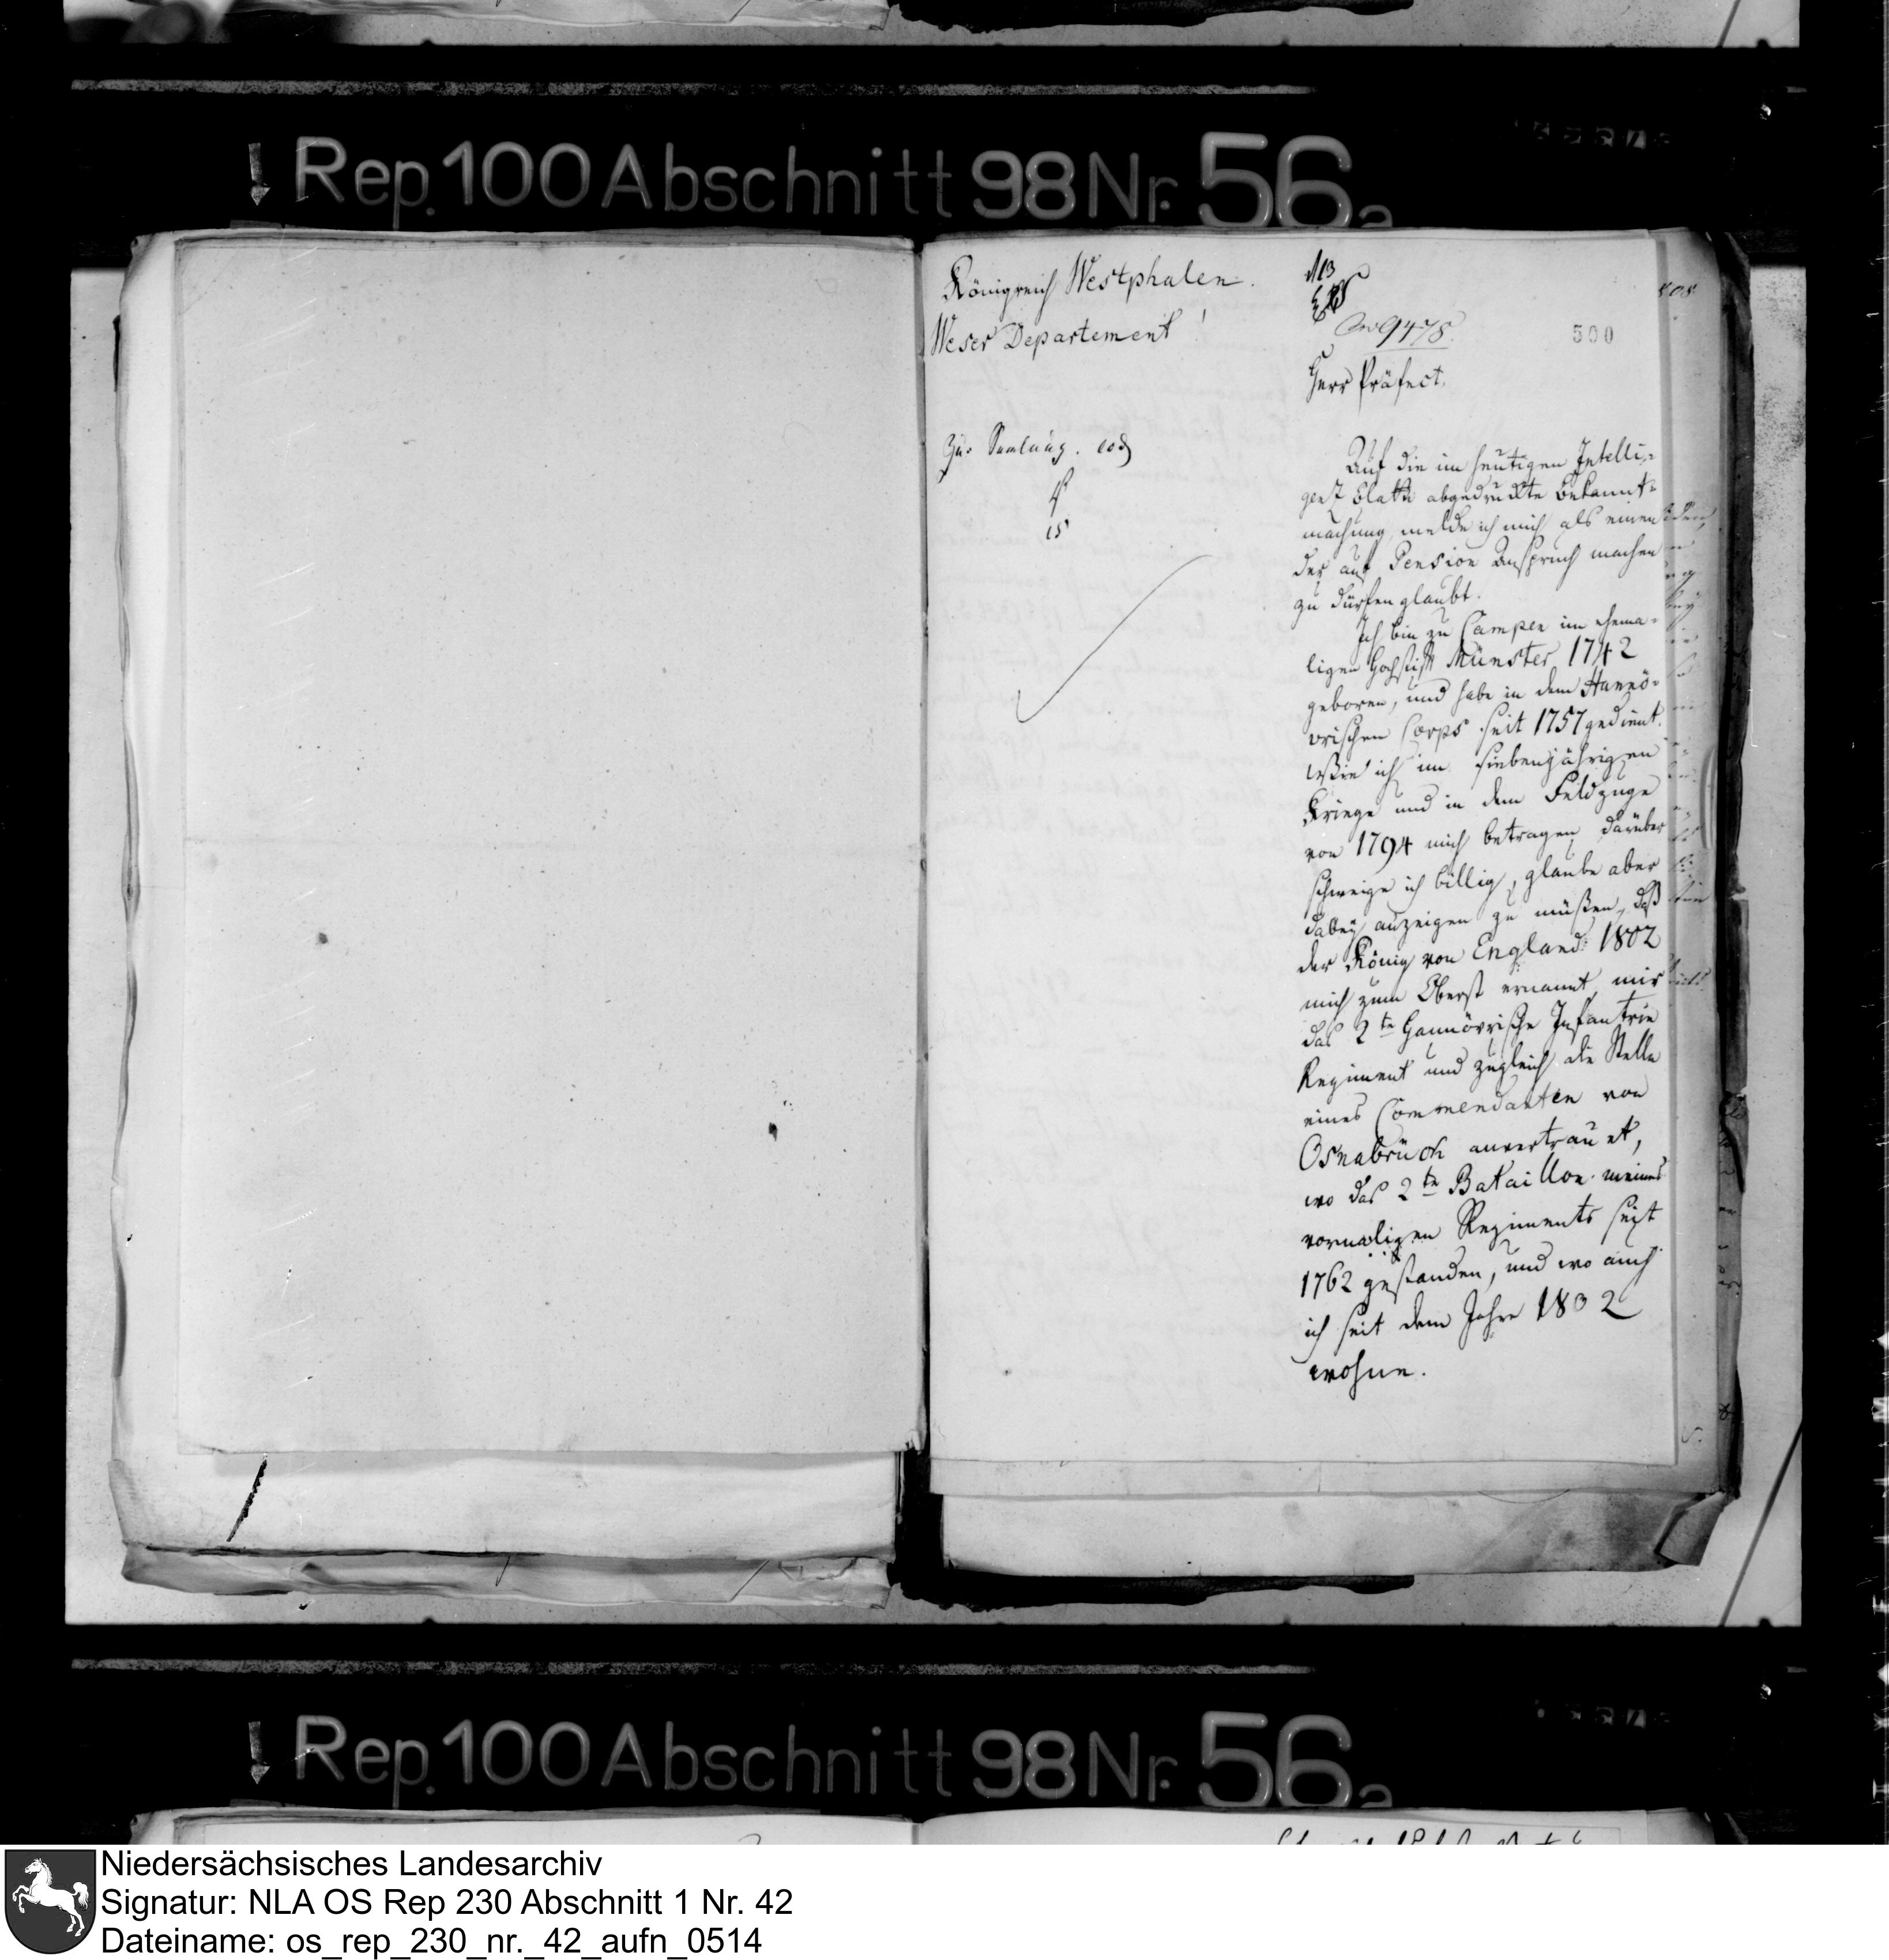 Rep. 100 Abschnitt 98 Nr. 56a
Königreich Westphalen.
Weser Departement
500
9478.
Herr Präfect.
Zur Samlung.
15
Auf die im heutigen Intelli-
genz Blatte abgedruckte Bekannt-
machung, melde ich mich als einen
der auf Pension Anspruch machen
zu dürfen glaubt.
Ich bin zu Campen im ehema-
ligen Hochstift Münster 1742
geboren, und habe in dem Hannö-
vrischen Corps seit 1757 gedient.
Wie ich im siebenjährigen
Kriege und in dem Feldzuge
von 1794 mich betragen, darüber
schweige ich billig, glaube aber
dabey anzeigen zu müßen, daß
der König von England 1802
mich zum Oberst ernannt, mir
das 2te Hannövrische Infanterie
Regiment und zugleich die Stelle
eines Commendanten von
Osnabrück anvertrauet,
wo das 2te Bataillon meines
vormaligen Regiments seit
1762 gestanden, und wo auch
ich seit dem Jahre 1802
wohne.
Rep. 100 Abschnitt 98 Nr. 56a
Niedersächsisches Landesarchiv
Signatur: NLA OS Rep 230 Abschnitt 1 Nr. 42
Dateiname: os_rep_230_nr._42_aufn_0514